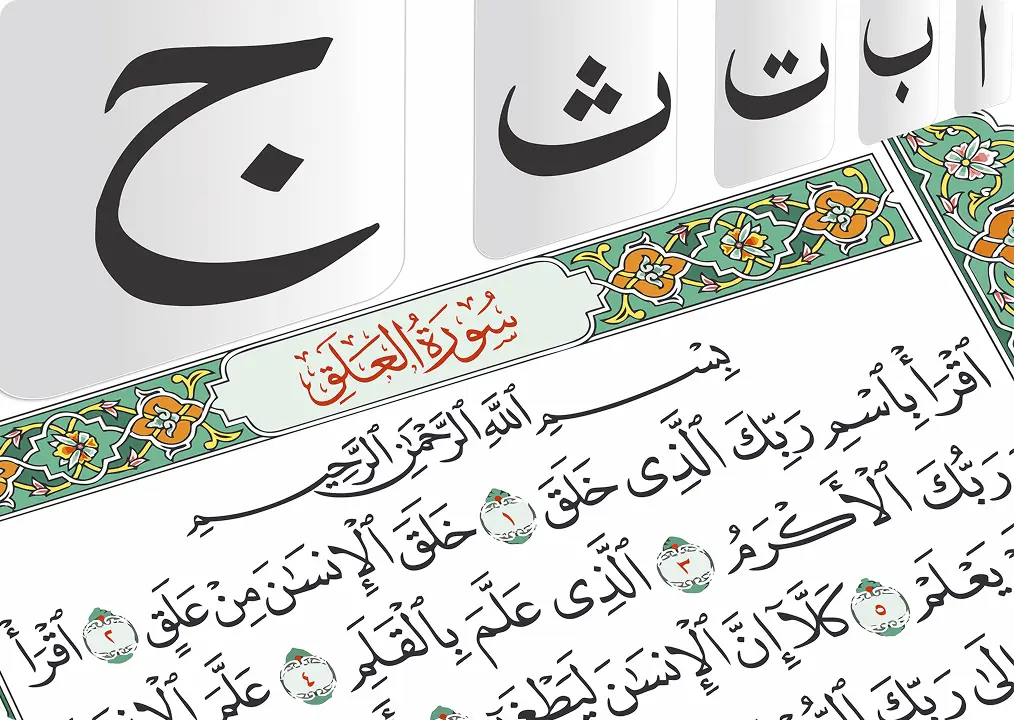 ا ب ت ث ج
سُورَةُ العَلَقِ
بِسْمِ ٱللَّهِ ٱلرَّحْمَٰنِ ٱلرَّحِيمِ
ٱقْرَأْ بِٱسْمِ رَبِّكَ ٱلَّذِى خَلَقَ ١ خَلَقَ ٱلْإِنسَٰنَ مِنْ عَلَقٍ ٢ ٱقْرَأْ
وَرَبُّكَ ٱلْأَكْرَمُ ٣ ٱلَّذِى عَلَّمَ بِٱلْقَلَمِ ٤ عَلَّمَ ٱلْإِنسَٰنَ
يَعْلَمْ ٥ كَلَّآ إِنَّ ٱلْإِنسَٰنَ لَيَطْغَىٰٓ
إِلَىٰ رَبِّكَ